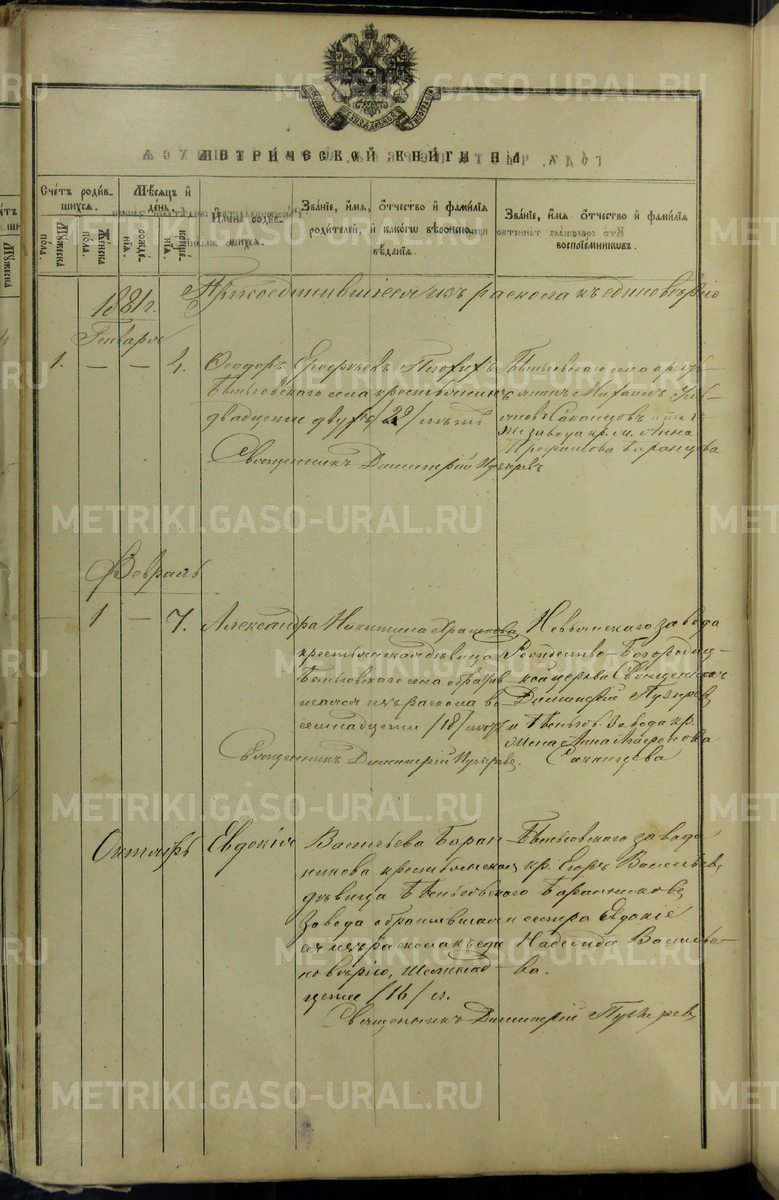 МЕТРИЧЕСКОЙ КНИГИ НА
Счетъ родив-
шихся.
Мѣсяцъ и
день.
Имена родив-
шихся.
Званіе, имя, отчество и фамилія
родителей, и какого вѣроиспо-
вѣданія.
Званіе, имя отчество и фамилія
воспріемниковъ.
Мужеска
пола.
Женска
пола.
рожде-
нія.
креще-
нія.
1881 г.
Присоединившіеся изъ раскола къ единовѣрію
Генварь
1. — — 4.
Ѳеодоръ Ерофеевъ
Быньговскаго села крестьянинъ
двадцати двухъ /22/ лѣтъ
Быньговскаго села крест-
янинъ Михаилъ
Саканцовъ и того
же завода кр. Анна
Трофимова Баранцова
Священникъ Димитрій Пузыревъ
Февраль
— 1 — 7.
Александра Никитина
крестьянская дѣвица
Быньговскаго села обратив
шаяся изъ раскола во
семнадцати /18/ лѣтъ
Невьянскаго завода
Рождество-Богородиц-
кой церкви Священникъ
Димитрій Пузыревъ
и Быньгов. завода кр.
жена Анна
Саканцова
Священникъ Димитрій Пузыревъ
Октябрь
Евдокія Васильева Баран-
никова крестьянская
дѣвица Быньговскаго
завода обратившая
ся изъ раскола къ еди
новѣрію, шестнад-
цати /16/ л.
Быньговскаго завода
кр. Егоръ Васильевъ
Баранниковъ
и сестра Евдокіи
Надежда Василье-
ва.
Священникъ Димитрій Пузыревъ
METRIKI.GASO-URAL.RU